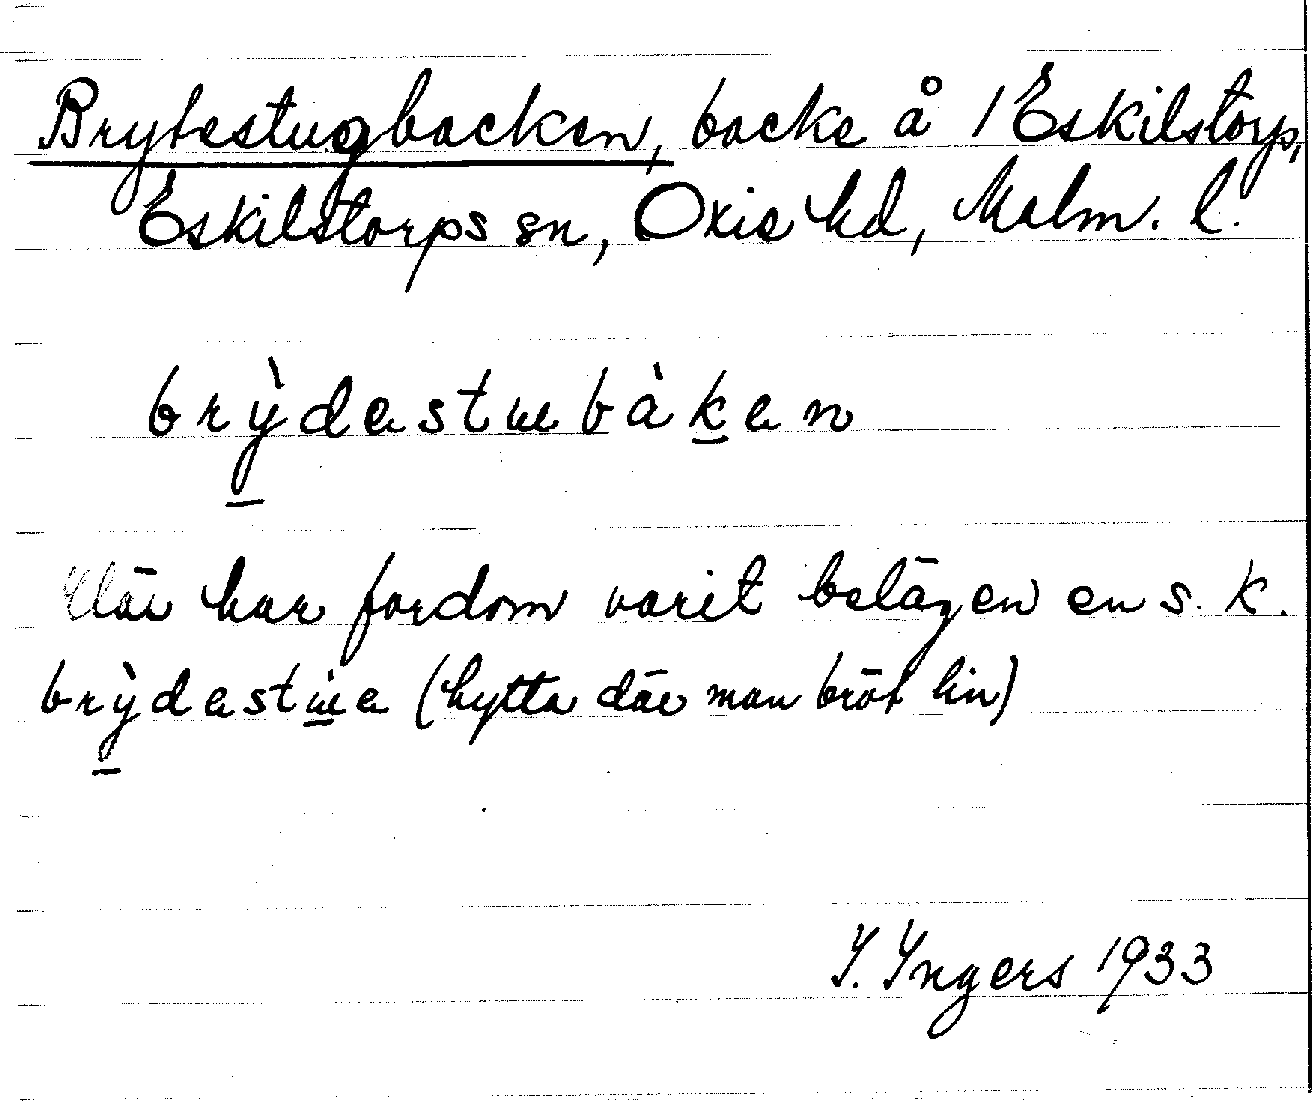 Brytestugbacken, backe å 1 Eskilstorp,
Eskilstorps sn, Oxie hd, Malm. l.
brỳdastuebàkan
Där har fordom varit belägen en s. k.
brỳdastuea (hytta där man bröt lin)
I. Ingers 1933